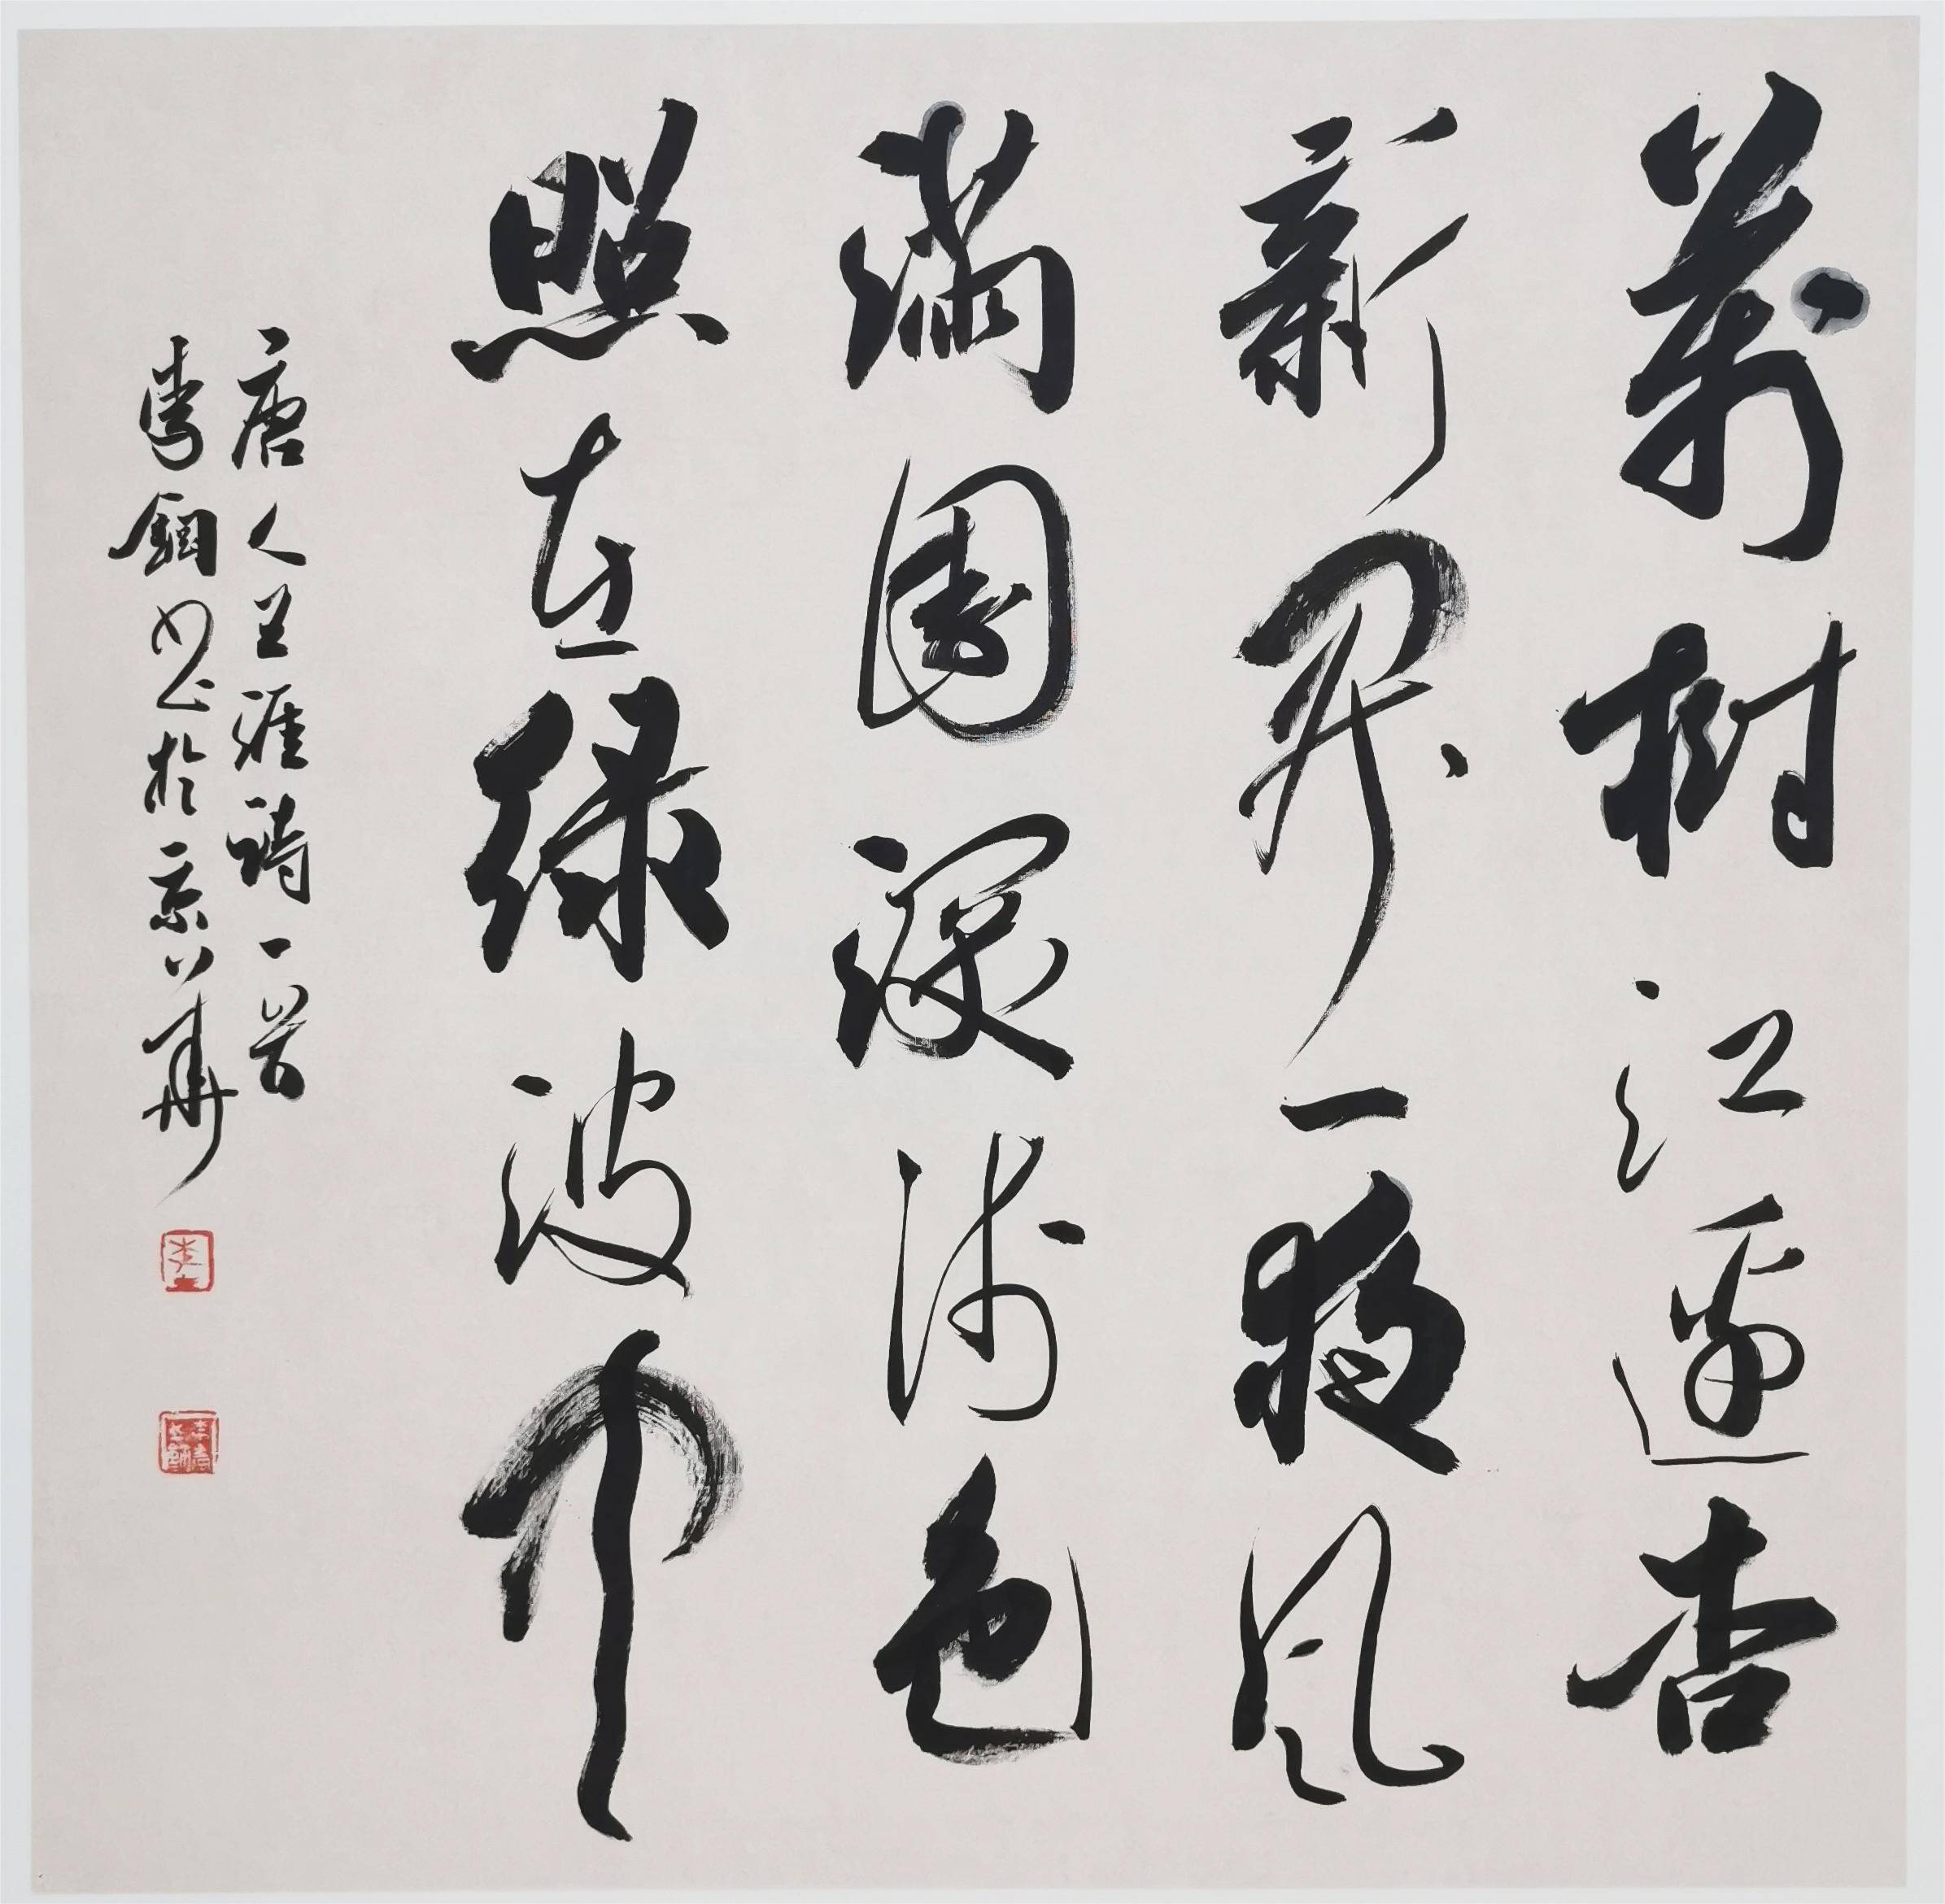 萬樹江邊杏
新開一夜風
滿園深淺色
照在綠波中
唐人王涯詩一首
李鋼書於京華
李